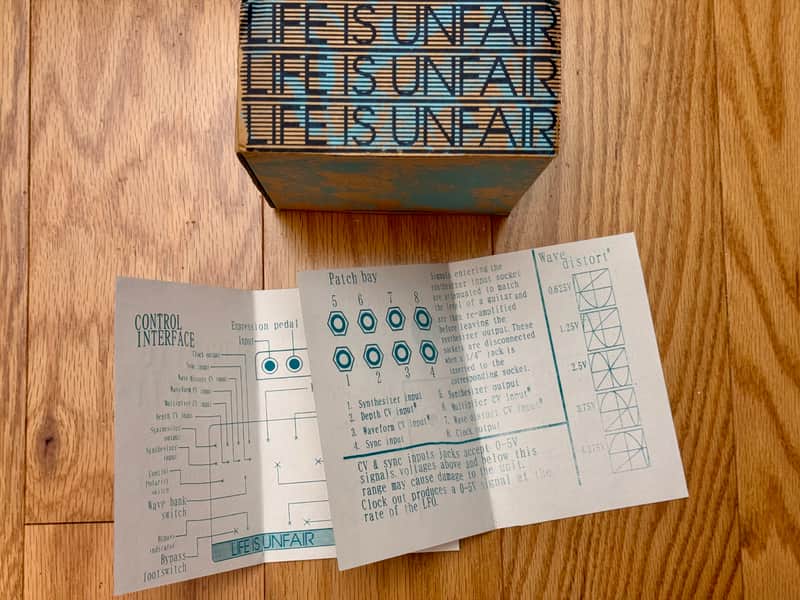 LIFE IS UNFAIR
LIFE IS UNFAIR
LIFE IS UNFAIR
CONTROL
INTERFACE
Expression pedal
Input
Clock output
Sync input
Wave Distort CV input
Waveform CV input
Multiplier CV input
Depth CV input
Synthesizer
output
Synthesizer
input
Control
Polarity
switch
Wave bank
switch
Bypass
indicator
Bypass
footswitch
LIFE IS UNFAIR
Patch bay
5 6 7 8
1 2 3 4
1. Synthesizer input
2. Depth CV input*
3. Waveform CV input*
4. Sync input
5. Synthesizer output
6. Multiplier CV input*
7. Wave distort CV input*
8. Clock output
Signals entering the
synthesizer input socket
are attenuated to match
the level of a guitar and
are then re-amplified
before leaving the
synthesizer output. These
sockets are disconnected
when a 1/4" jack is
inserted to the
corresponding socket.
CV & sync inputs jacks accept 0-5V
signals, voltages above and below this
range may cause damage to the unit.
Clock out produces a 0-5V signal at the
rate of the LFO.
Wave
distort*
0.625V
1.25V
2.5V
3.75V
4.375V